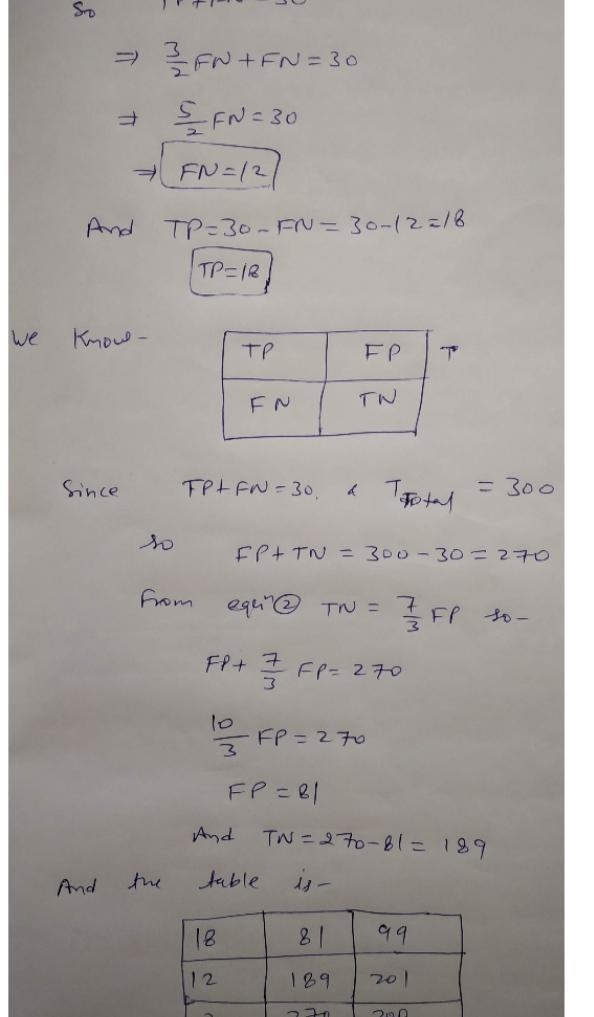 So
⇒ 3/2 FN + FN = 30
⇒ 5/2 FN = 30
⇒ FN = 12
And TP = 30 - FN = 30 - 12 = 18
TP = 18
We Know -
TP FP T
FN TN
Since TP + FN = 30. & T Total = 300
so FP + TN = 300 - 30 = 270
From equⁿ ② TN = 7/3 FP so -
FP + 7/3 FP = 270
10/3 FP = 270
FP = 81
And TN = 270 - 81 = 189
And the table is -
18 81 99
12 189 201